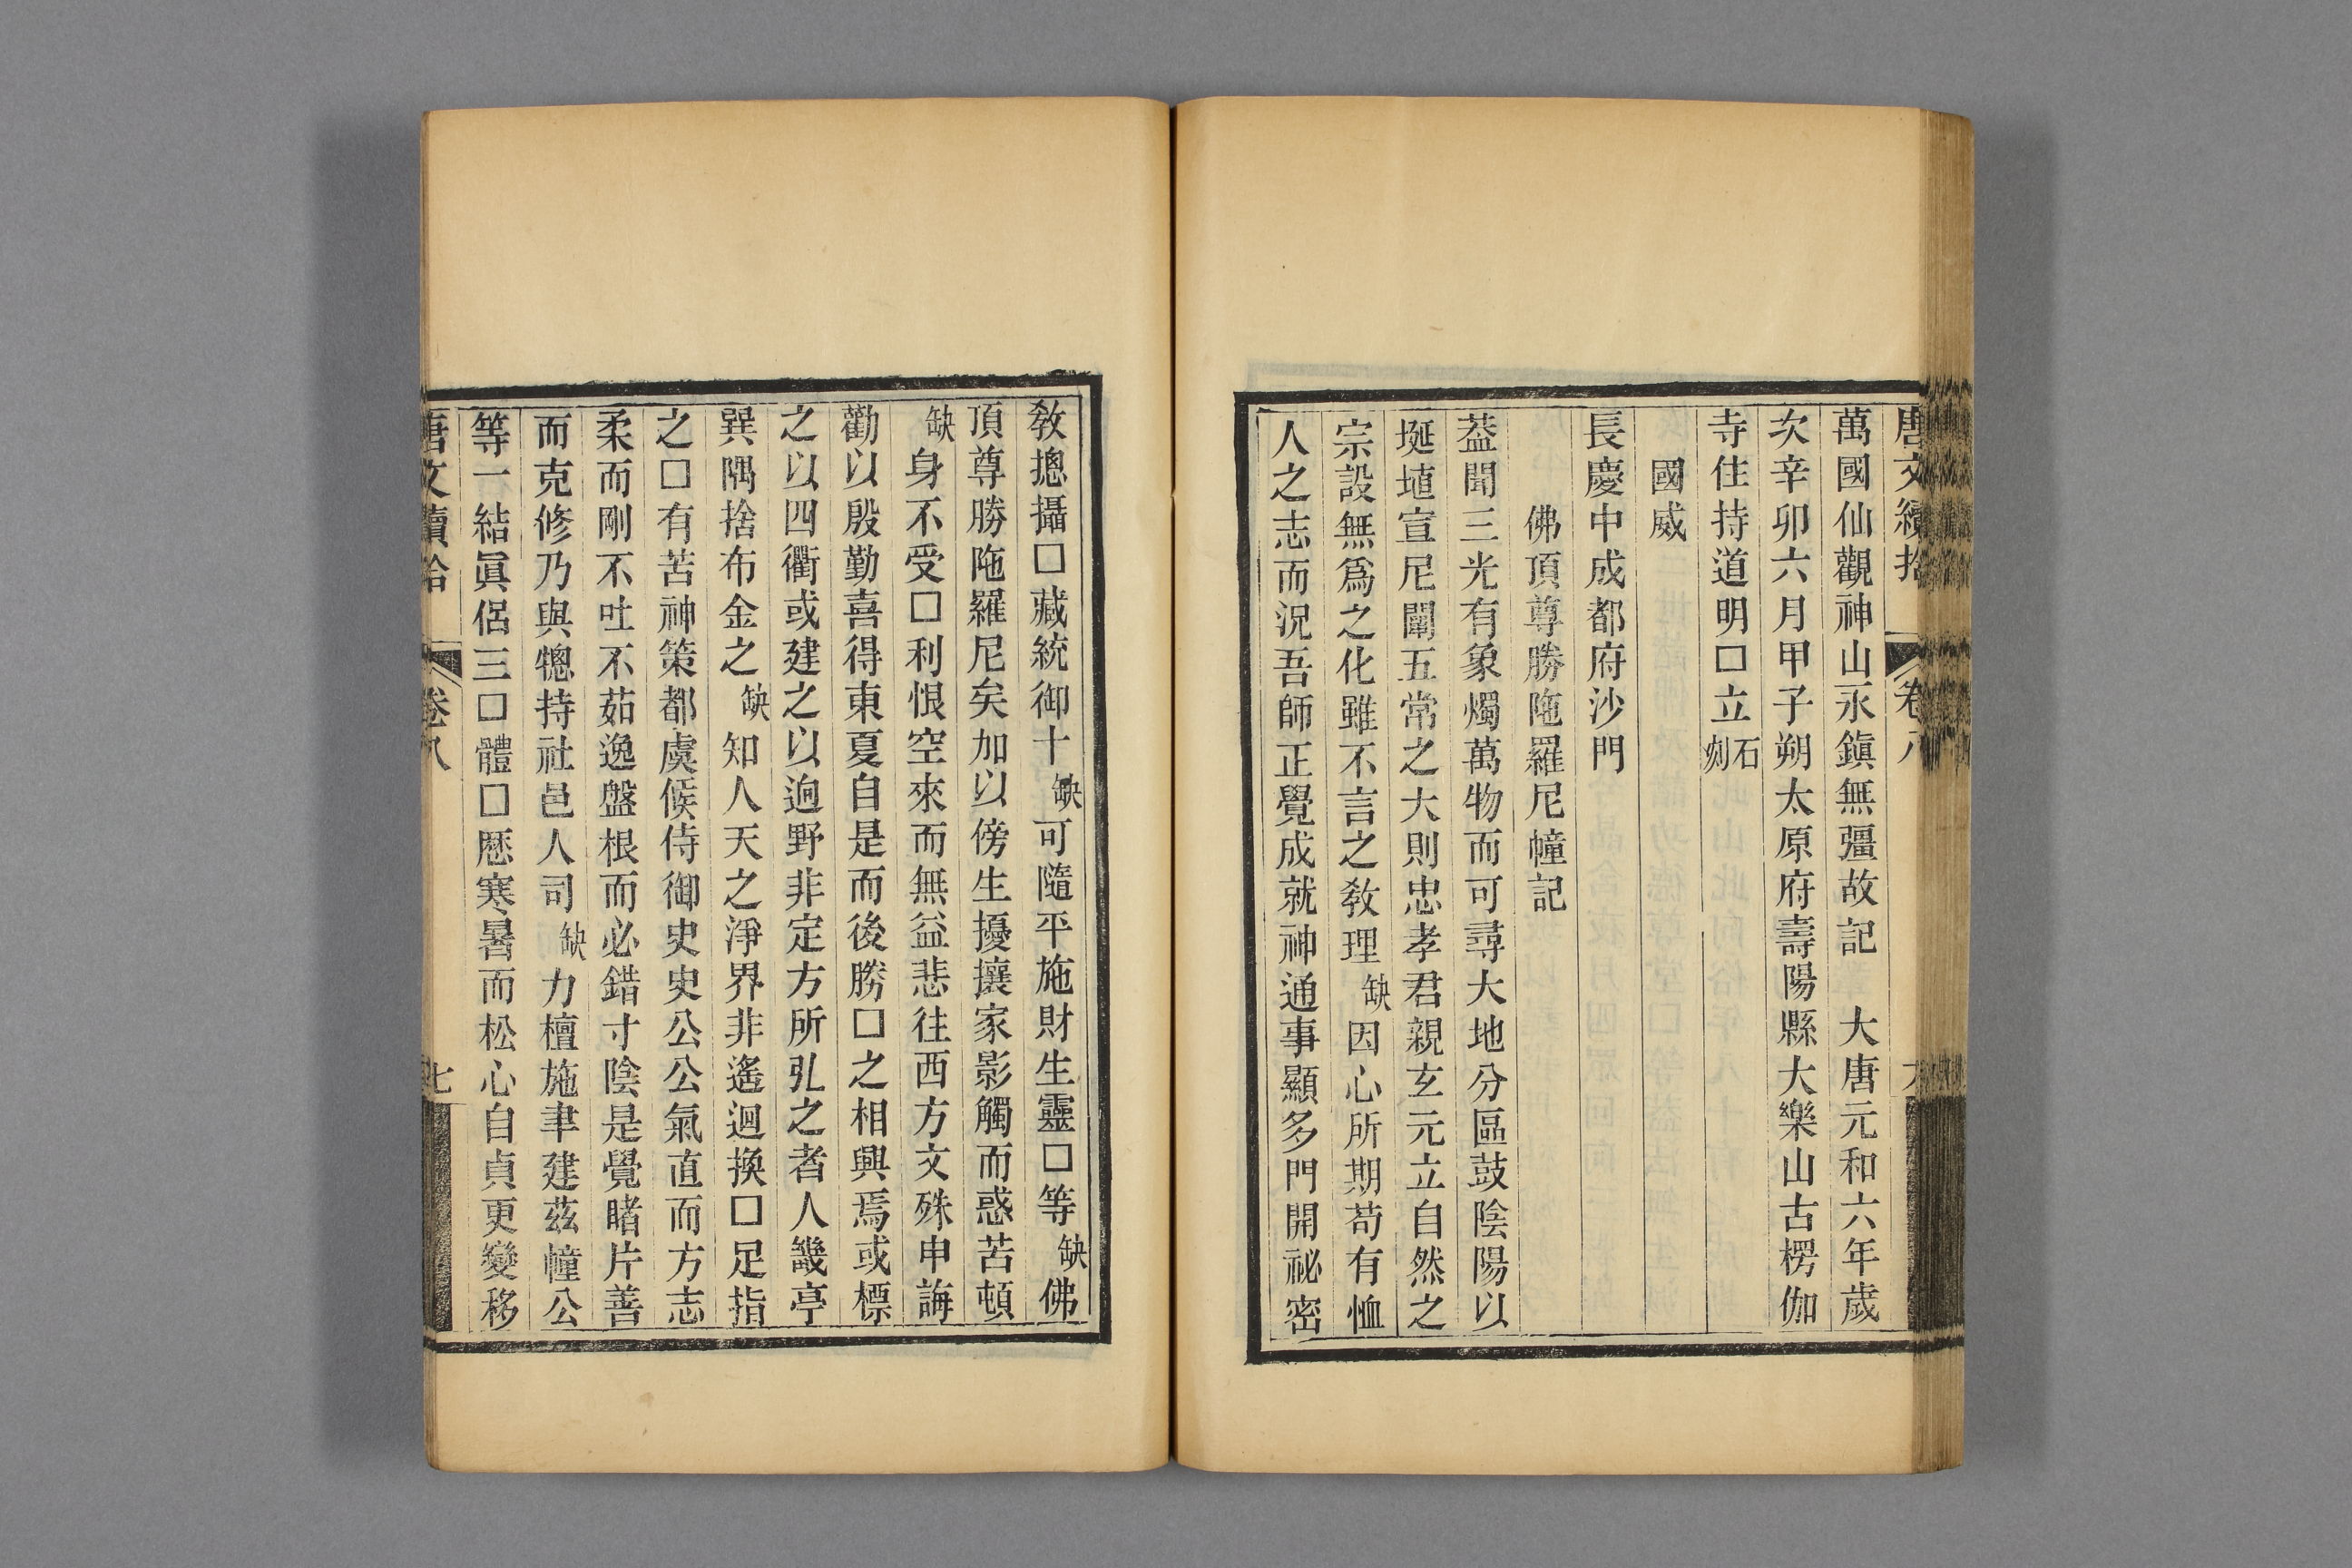 唐文續拾　卷八
萬國仙觀神山永鎭無彊故記　大唐元和六年歲
次辛卯六月甲子朔太原府壽陽縣大樂山古楞伽
寺住持道明□立石刻
國威
長慶中成都府沙門
佛頂尊勝陁羅尼幢記
葢聞三光有象燭萬物而可尋大地分區鼓陰陽以
埏埴宣尼闡五常之大則忠孝君親玄元立自然之
宗設無爲之化雖不言之敎理缺因心所期苟有恤
人之志而況吾師正覺成就神通事顯多門開祕密
敎摠攝□藏統御十缺可隨平施財生靈□等缺佛
頂尊勝陁羅尼矣加以傍生擾攘家影觸而惑苦頓
缺身不受□利恨空來而無益悲往西方文殊申誨
勸以殷勤喜得東夏自是而後勝□之相興焉或標
之以四衢或建之以逈野非定方所弘之者人畿亭
巽隅捨布金之缺知人天之淨界非遙迴換□足指
之□有苦神策都虞候侍御史史公公氣直而方志
柔而剛不吐不茹逸盤根而必錯寸陰是覺睹片善
而克修乃與㹅持社邑人司缺力檀施聿建茲幢公
等一結眞侶三□體□歷寒暑而松心自貞更變移
唐文續拾　卷八　七